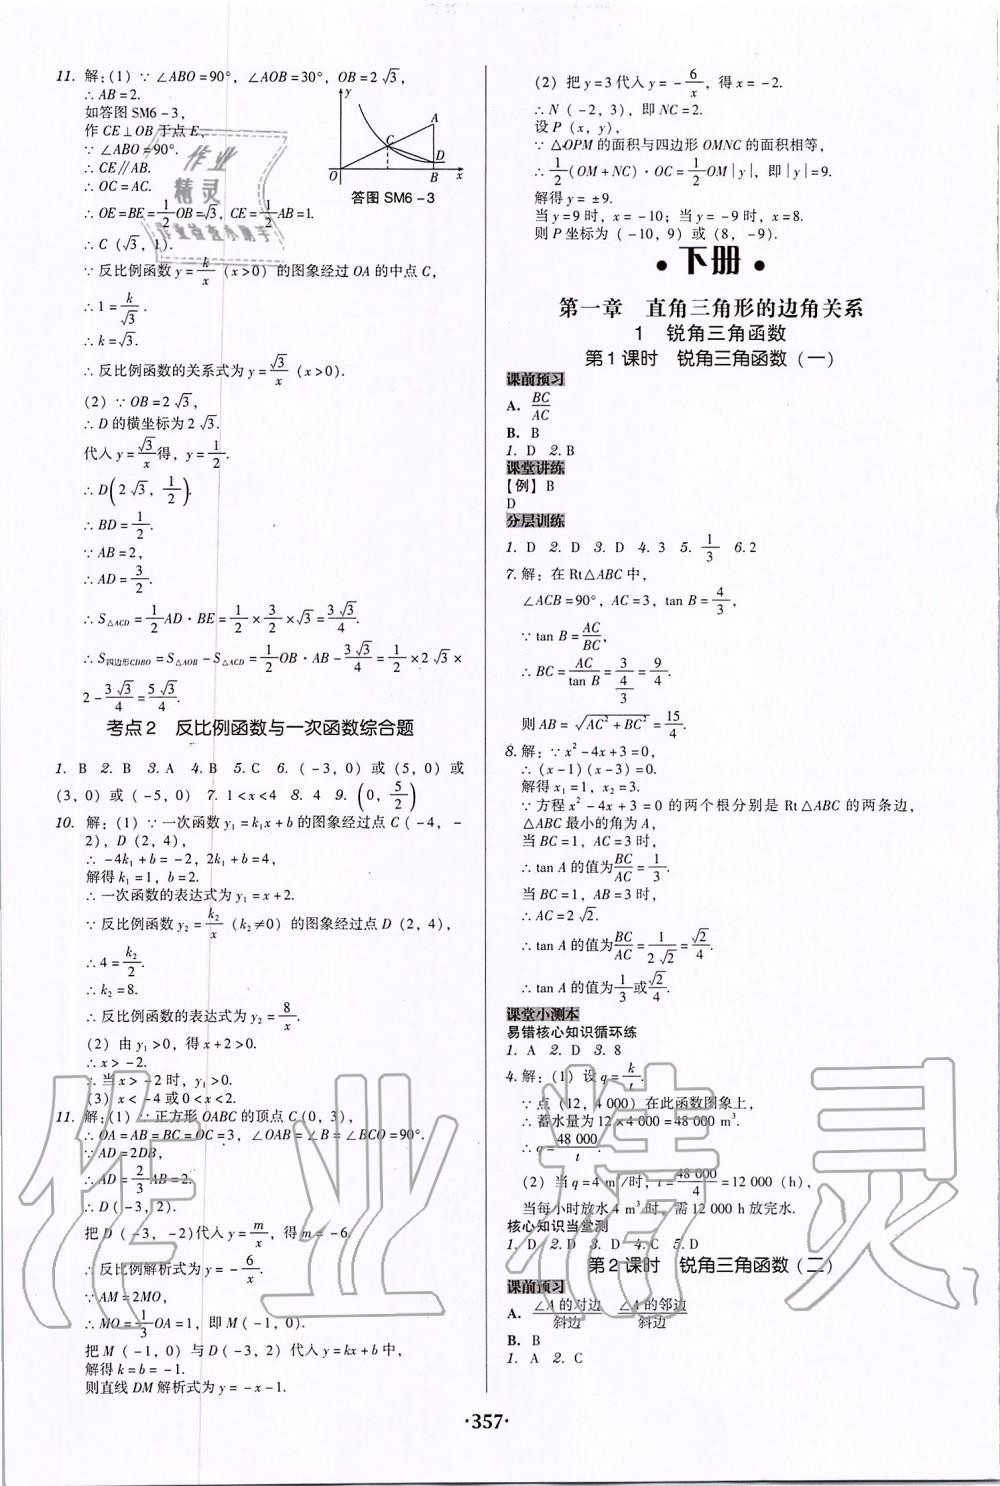 11. 解:(1) ∵ ∠ABO=90°, ∠AOB=30°, OB=2√3,
∴ AB=2.
如答图 SM6-3,
作 CE⊥OB 于点 E,
∵ ∠ABO=90°.
∴ CE∥AB.
∴ OC=AC.
∴ OE=BE=1/2OB=√3, CE=1/2AB=1.
∴ C(√3, 1).
y
A
C
D
O
B
x
答图 SM6-3
∵ 反比例函数 y=k/x(x>0)的图象经过 OA 的中点 C,
∴ 1=k/√3.
∴ k=√3.
∴ 反比例函数的关系式为 y=√3/x(x>0).
(2) ∵ OB=2√3,
∴ D 的横坐标为 2√3.
代入 y=√3/x得, y=1/2.
∴ D(2√3, 1/2).
∴ BD=1/2.
∵ AB=2,
∴ AD=3/2.
∴ S△ACD=1/2AD·BE=1/2×3/2×√3=3√3/4.
∴ S四边形CDBO=S△AOB-S△ACD=1/2OB·AB-3√3/4=1/2×2√3×
2-3√3/4=5√3/4.
考点2 反比例函数与一次函数综合题
1. B 2. B 3. A 4. B 5. C 6. (-3, 0) 或 (5, 0) 或
(3, 0) 或 (-5, 0) 7. 1<x<4 8. 4 9. (0, 5/2)
10. 解:(1) ∵ 一次函数 y₁=k₁x+b 的图象经过点 C(-4, -
2), D(2, 4),
∴ -4k₁+b=-2, 2k₁+b=4,
解得 k₁=1, b=2.
∴ 一次函数的表达式为 y₁=x+2.
∵ 反比例函数 y₂=k₂/x(k₂≠0)的图象经过点 D(2, 4),
∴ 4=k₂/2.
∴ k₂=8.
∴ 反比例函数的表达式为 y₂=8/x.
(2) 由 y₁>0, 得 x+2>0.
∴ x>-2.
∴ 当 x>-2 时, y₁>0.
(3) x<-4 或 0<x<2.
11. 解:(1) ∵ 正方形 OABC 的顶点 C(0, 3),
∴ OA=AB=BC=OC=3, ∠OAB=∠B=∠BCO=90°.
∵ AD=2DB,
∴ AD=2/3AB=2.
∴ D(-3, 2).
把 D(-3, -2)代入 y=m/x, 得 m=-6.
∴ 反比例解析式为 y=-6/x.
∵ AM=2MO,
∴ MO=1/3OA=1, 即 M(-1, 0).
把 M(-1, 0)与 D(-3, 2)代入 y=kx+b 中,
解得 k=b=-1.
则直线 DM 解析式为 y=-x-1.
(2) 把 y=3 代入 y=-6/x, 得 x=-2.
∴ N(-2, 3), 即 NC=2.
设 P(x, y),
∵ △OPM 的面积与四边形 OMNC 的面积相等,
∴ 1/2(OM+NC)·OC=1/2OM|y|, 即|y|=9.
解得 y=±9.
当 y=9 时, x=-10; 当 y=-9 时, x=8.
则 P 坐标为 (-10, 9) 或 (8, -9).
·下册·
第一章 直角三角形的边角关系
1 锐角三角函数
第1课时 锐角三角函数(一)
课前预习
A. BC/AC
B. B
1. D 2. B
课堂讲练
【例】B
D
分层训练
1. D 2. D 3. D 4. 3 5. 1/3 6. 2
7. 解: 在 Rt△ABC 中,
∠ACB=90°, AC=3, tan B=4/3,
∵ tan B=AC/BC,
∴ BC=AC/tan B=3/(4/3)=9/4.
则 AB=√(AC²+BC²)=15/4.
8. 解: ∵ x²-4x+3=0,
∴ (x-1)(x-3)=0.
解得 x₁=1, x₂=3.
∵ 方程 x²-4x+3=0 的两个根分别是 Rt△ABC 的两条边,
△ABC 最小的角为 A,
当 BC=1, AC=3 时,
∴ tan A 的值为BC/AC=1/3.
当 BC=1, AB=3 时,
∴ AC=2√2.
∴ tan A 的值为BC/AC=1/2√2=√2/4.
∴ tan A 的值为1/3或√2/4.
课堂小测本
易错核心知识循环练
1. A 2. D 3. 8
4. 解:(1) 设 q=k/t.
∵ 点(12, 4 000)在此函数图象上,
∴ 蓄水量为 12×4 000=48 000 m³.
∴ q=48 000/t.
(2) 当 q=4 m³/时, t=48 000/4=12 000(h),
当每小时放水 4 m³ 时, 需 12 000 h 放完水.
核心知识当堂测
1. D 2. D 3. D 4. C 5. D
第2课时 锐角三角函数(二)
课前预习
A. ∠A的对边/斜边 ∠A的邻边/斜边
B. B
1. A 2. C
·357·
作业精灵